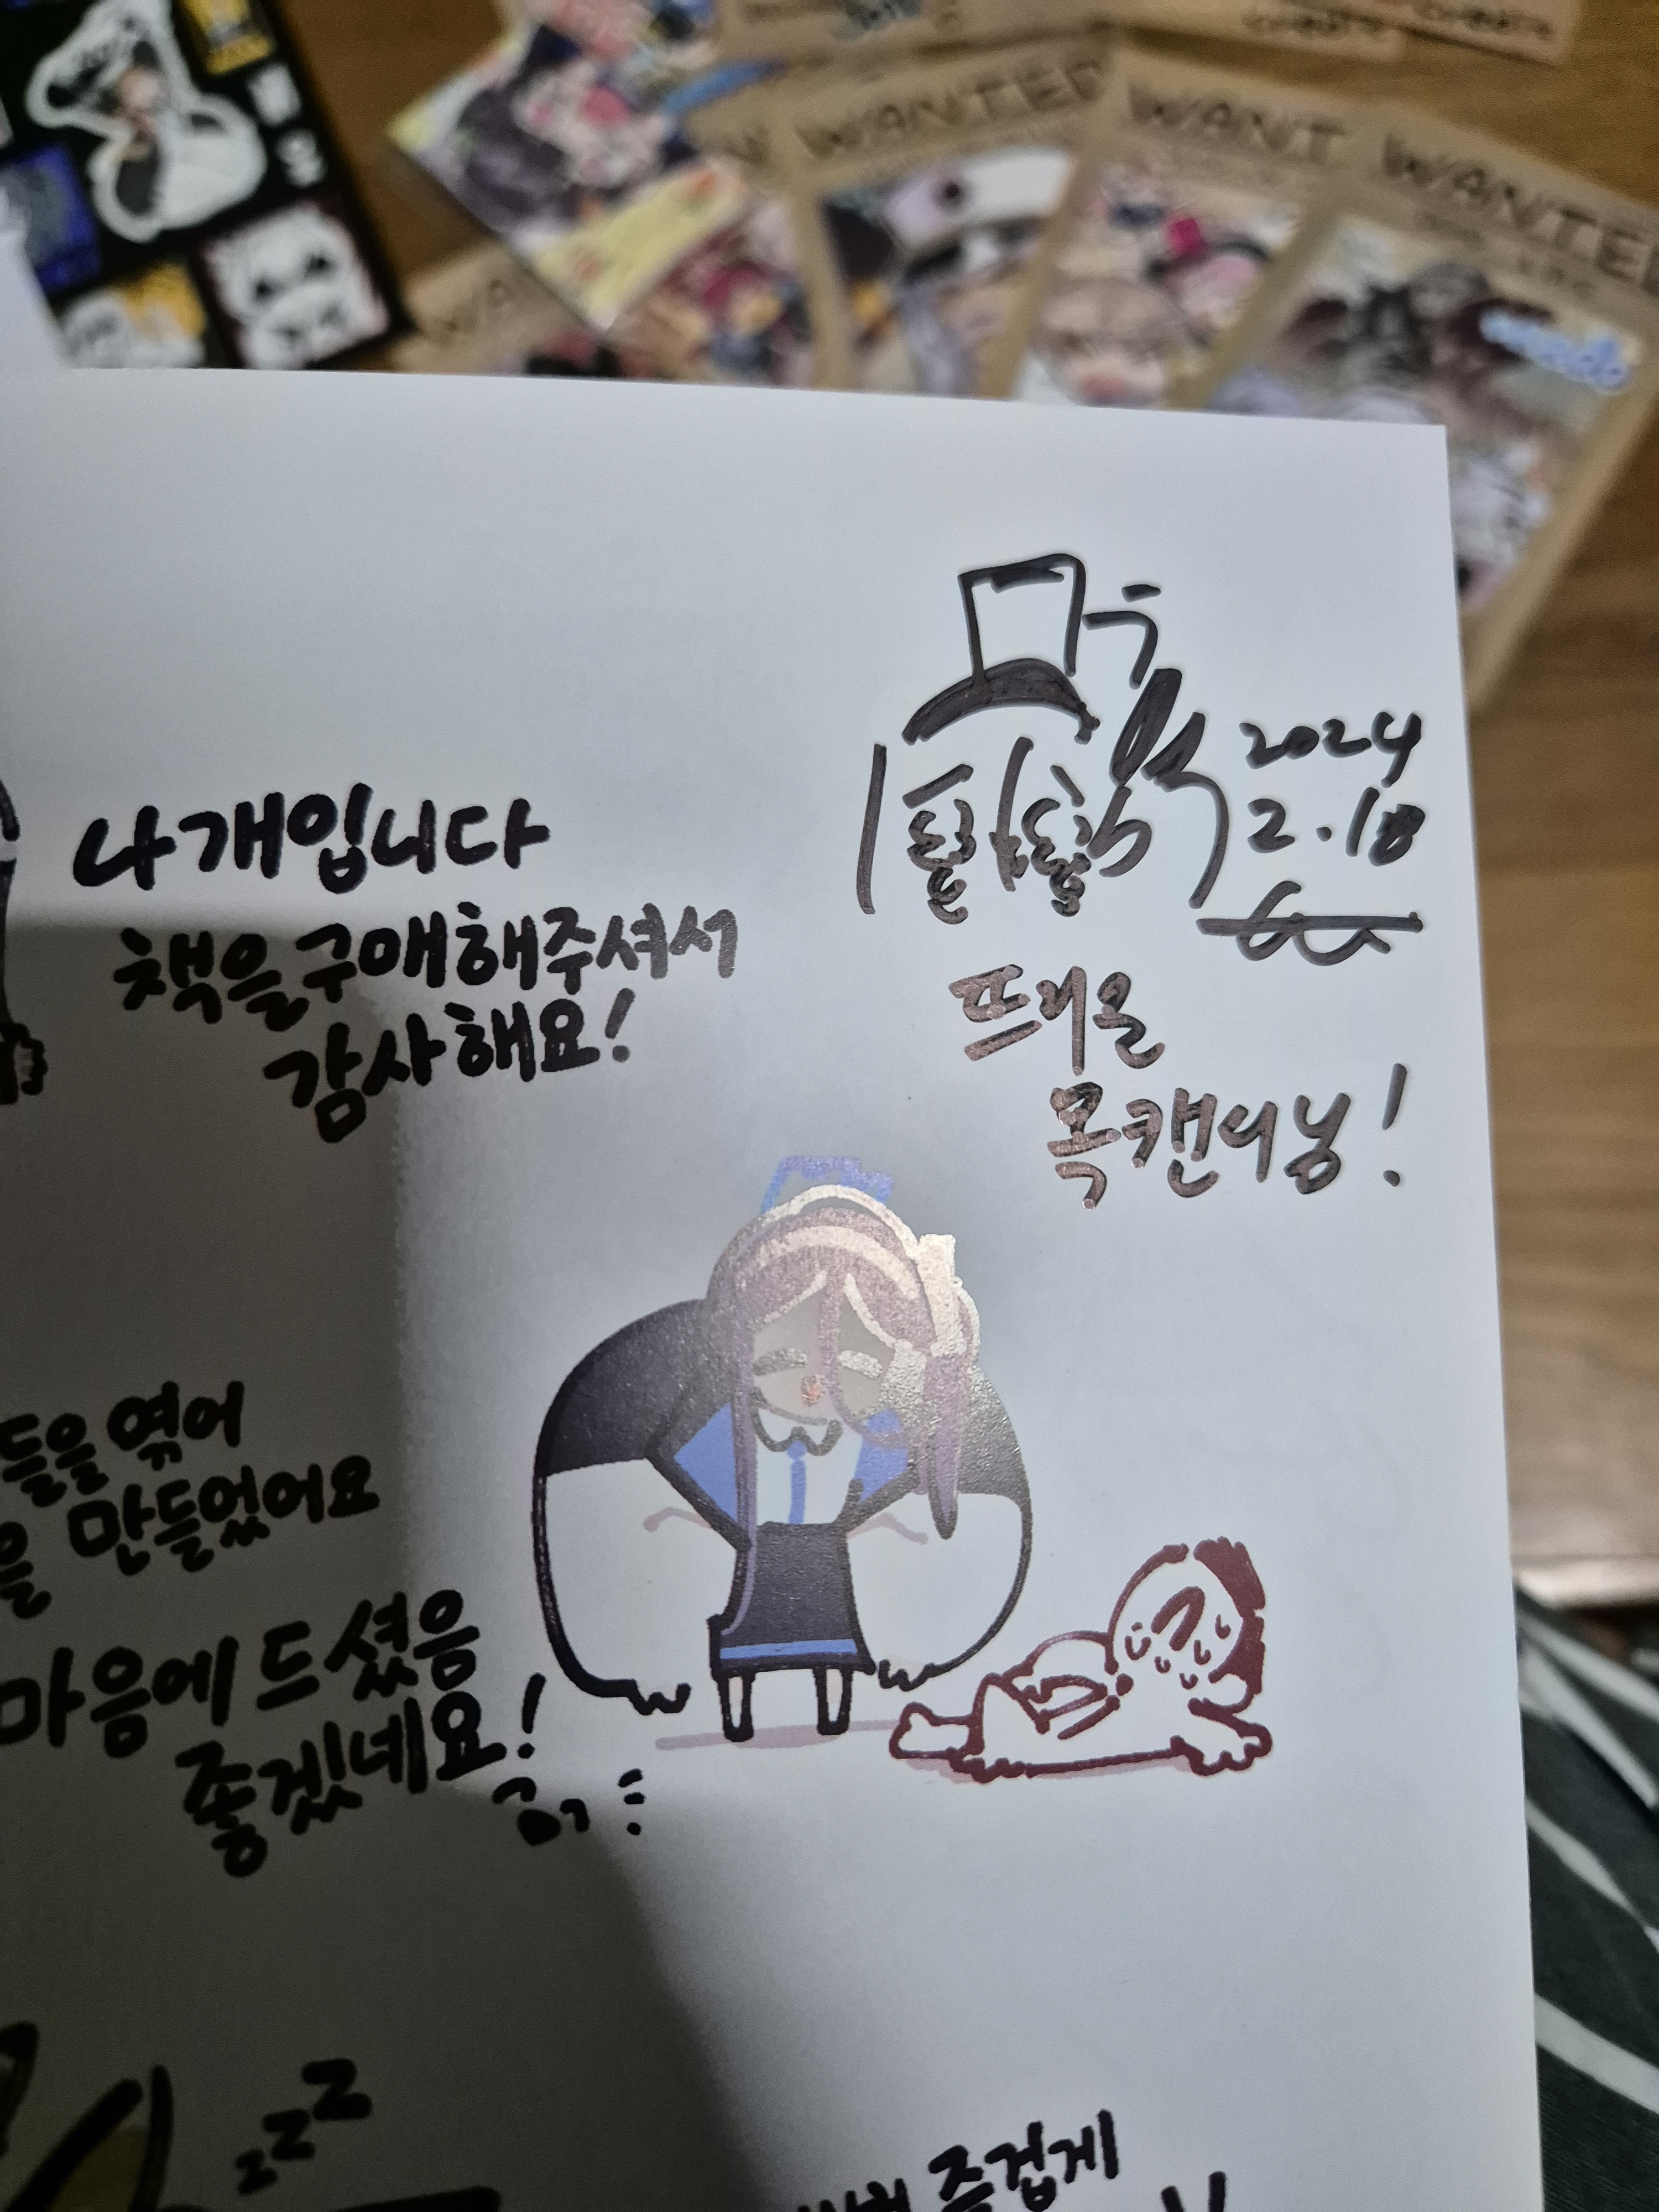 WANTED
WANT
WANTED
2024
2.18
나개입니다
책을 구매해주셔서
감사해요!
뜨리온
목캔디닝!
들을 엮어
을 만들었어요
마음에 드셨음
좋겠네요!
zzZ
즐겁게